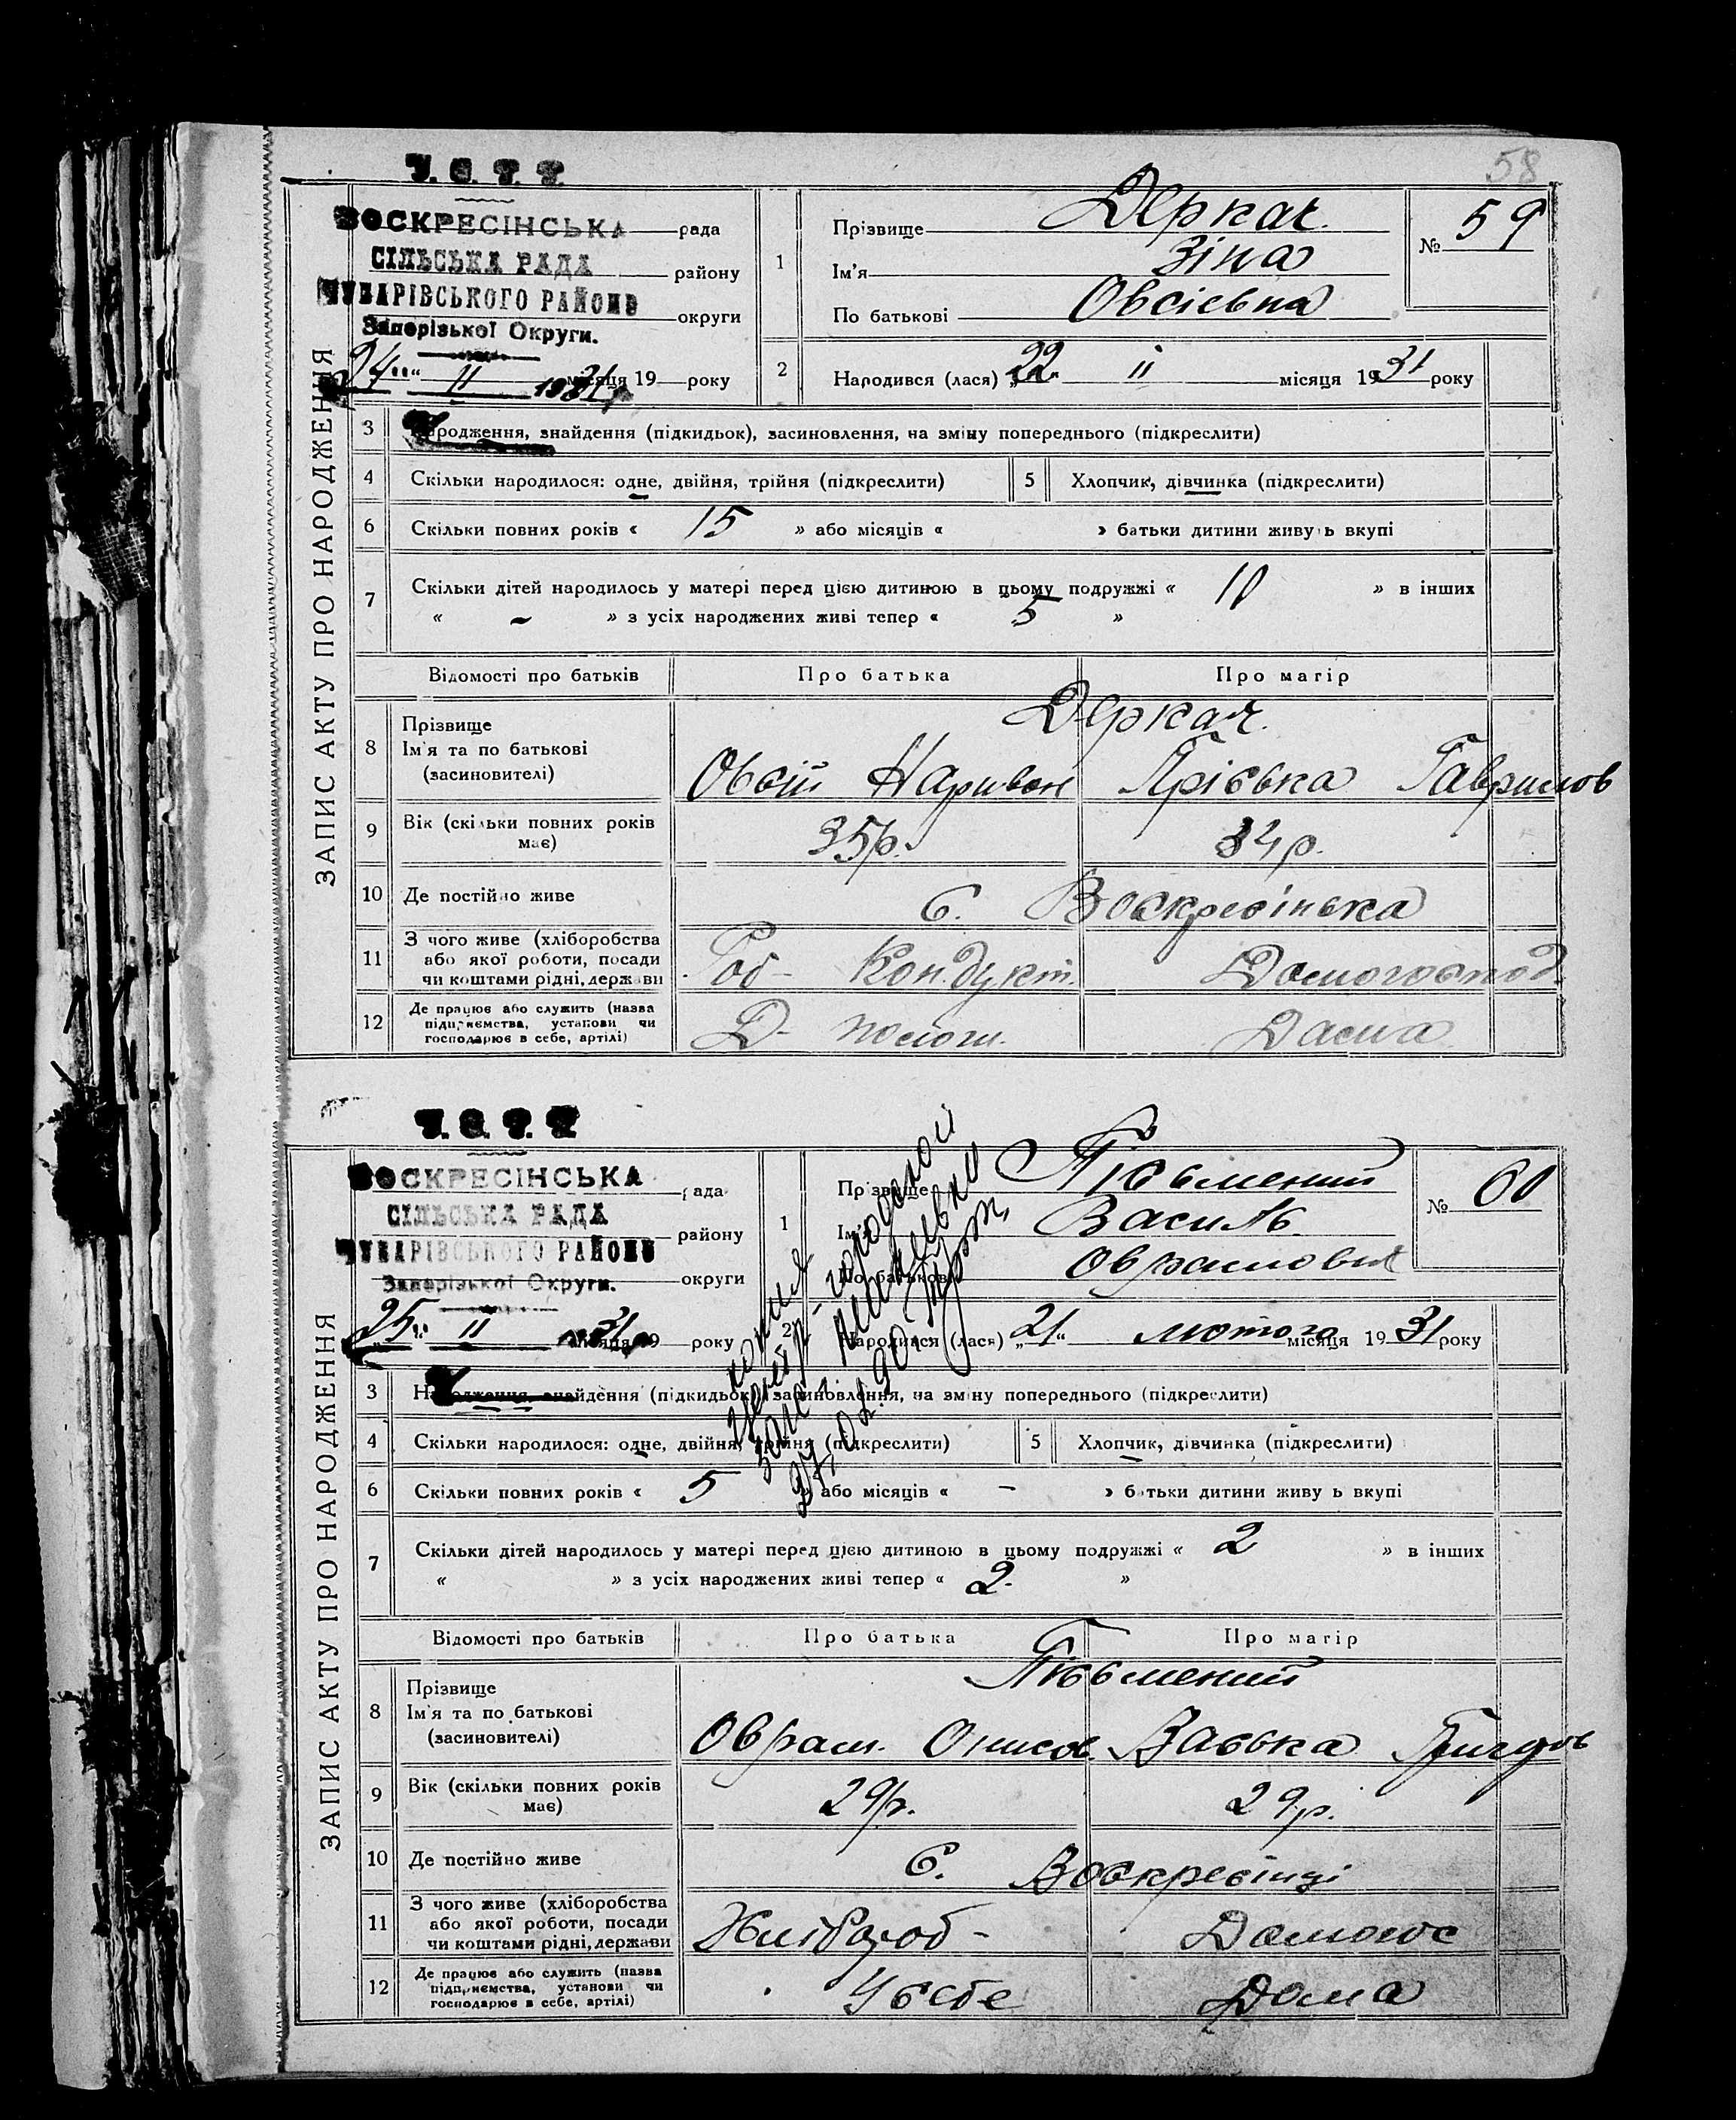 58
У. С. Р. Р.
ЗАПИС АКТУ ПРО НАРОДЖЕННЯ
ВОСКРЕСІНСЬКА рада
СІЛЬСЬКА РАДА району
ЧУБАРІВСЬКОГО РАЙОНУ округи
Запорізької Округи.
24 " II місяця 19 31 року
1 Прізвище Деркач
Ім'я Зіна
По батькові Овсієвна
№ 59
2 Народився (лася) „22" II місяця 1931 року
3 Народження, знайдення (підкидьок), засиновлення, на зміну попереднього (підкреслити)
4 Скільки народилося: одне, двійня, трійня (підкреслити) 5 Хлопчик, дівчинка (підкреслити)
6 Скільки повних років « 15 » або місяців « » батьки дитини живуть вкупі
7 Скільки дітей народилось у матері перед цією дитиною в цьому подружжі « 10 » в інших
« – » з усіх народжених живі тепер « 5 »
Відомості про батьків Про батька Про матір
8 Прізвище Деркач.
Ім'я та по батькові
(засиновителі) Овсій Наривон Пріська Гаврилов
9 Вік (скільки повних років має) 35р. 34р.
10 Де постійно живе С. Воскресінька
11 З чого живе (хліборобства
або якої роботи, посади
чи коштами рідні, держави Роб- Кондукт. Домогоспод.
12 Де працює або служить (назва
підприємства, установи чи
господарює в себе, артілі) Дома
У. С. Р. Р.
ЗАПИС АКТУ ПРО НАРОДЖЕННЯ
ВОСКРЕСІНСЬКА рада
СІЛЬСЬКА РАДА району
ЧУБАРІВСЬКОГО РАЙОНУ округи
Запорізької Округи.
25 " II місяця 19 31 року
1 Прізвище Письмений
Ім'я Василь
По батькові Оврамович
№ 60
2 Народився (лася) „21" лютого місяця 1931 року
3 Народження, знайдення (підкидьок), засиновлення, на зміну попереднього (підкреслити)
4 Скільки народилося: одне, двійня, трійня (підкреслити) 5 Хлопчик, дівчинка (підкреслити)
6 Скільки повних років « 5 » або місяців « – » батьки дитини живуть вкупі
7 Скільки дітей народилось у матері перед цією дитиною в цьому подружжі « 2 » в інших
« » з усіх народжених живі тепер « 2. »
Відомості про батьків Про батька Про матір
8 Прізвище Письмений
Ім'я та по батькові
(засиновителі) Оврам. Онисов. Васька Григоров
9 Вік (скільки повних років має) 29р. 29р.
10 Де постійно живе С. Воскресінці
11 З чого живе (хліборобства
або якої роботи, посади
чи коштами рідні, держави Хлібороб- Домогос
12 Де працює або служить (назва
підприємства, установи чи
господарює в себе, артілі) У себе Дома